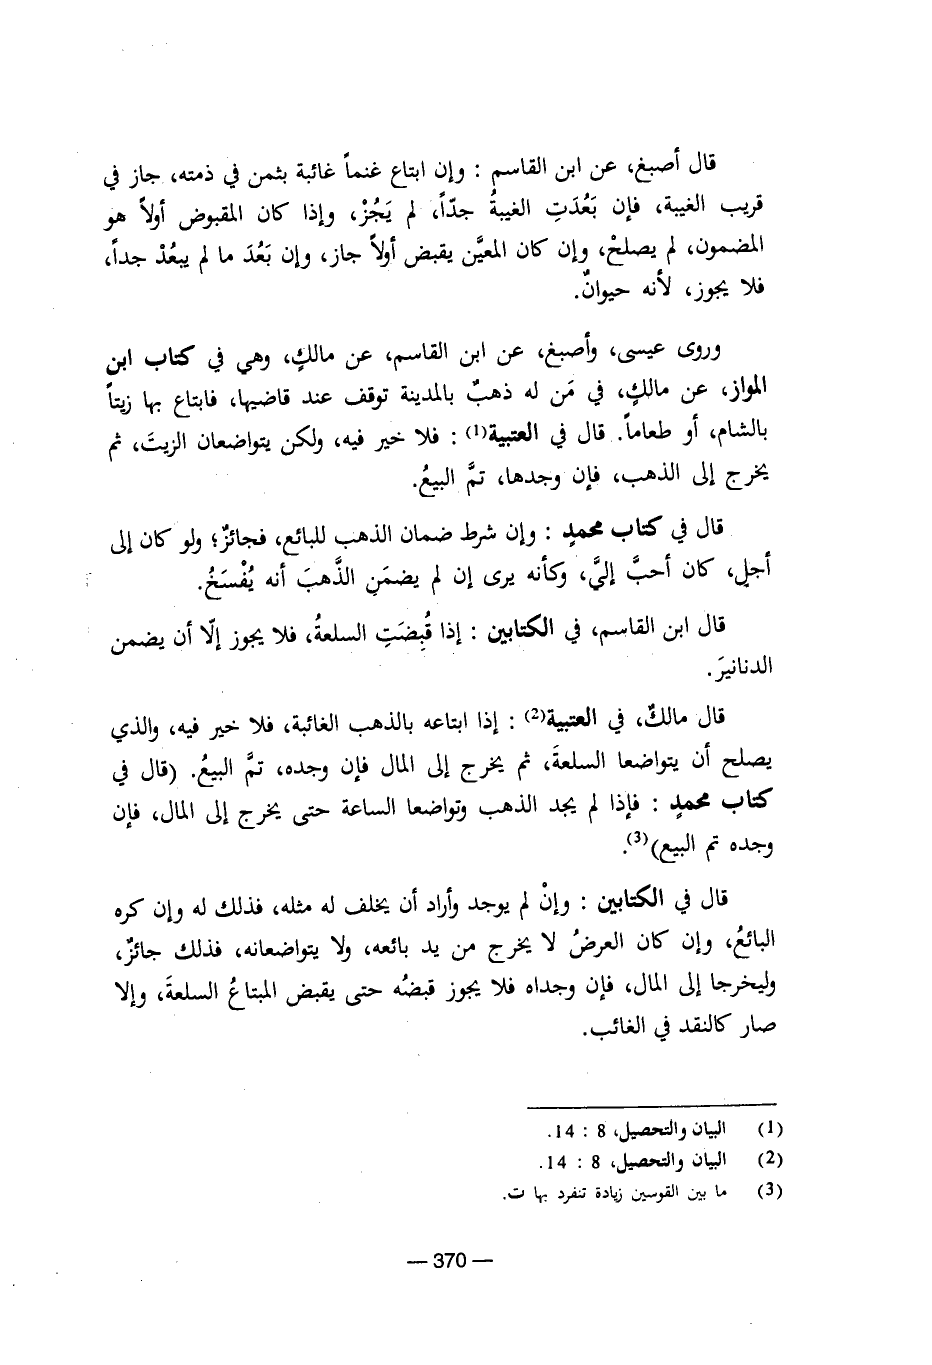 قال أصبغ، عن ابن القاسم : وإن ابتاع غنماً غائبة بثمن في ذمته، جاز في
قريب الغيبة، فإن بَعُدَتِ الغيبةُ جدّاً، لم يَجُزْ، وإذا كان المقبوض أولاً هو
المضمون، لم يصلحْ، وإن كان المعيَّن يقبض أولاً جاز، وإن بَعُدَ ما لم يبعُدْ جداً،
فلا يجوز، لأنه حيوانٌ.
وروى عيسى، وأصبغ، عن ابن القاسم، عن مالكٍ، وهي في كتاب ابن
المواز، عن مالكٍ، في مَن له ذهبٌ بالمدينة توقف عند قاضيها، فابتاع بها زيتاً
بالشام، أو طعاماً. قال في العتبية(1) : فلا خير فيه، ولكن يتواضعان الزيتَ، ثم
يخرج إلى الذهب، فإن وجدها، تمَّ البيعُ.
قال في كتاب محمدٍ : وإن شرط ضمان الذهب للبائع، فجائزٌ؛ ولو كان إلى
أجلٍ، كان أحبَّ إليَّ، وكأنه يرى إن لم يضمَنِ الذَّهبَ أنه يُفْسَخُ.
قال ابن القاسم، في الكتابين : إذا قُبِضَتِ السلعةُ، فلا يجوز إلّا أن يضمن
الدنانيرَ.
قال مالكٌ، في العتبية(2) : إذا ابتاعه بالذهب الغائبة، فلا خير فيه، والذي
يصلح أن يتواضعا السلعةَ، ثم يخرج إلى المال فإن وجده، تمَّ البيعُ. (قال في
كتاب محمدٍ : فإذا لم يجد الذهب وتواضعا الساعة حتى يخرج إلى المال، فإن
وجده تم البيع)(3).
قال في الكتابين : وإنْ لم يوجد وأراد أن يخلف له مثله، فذلك له وإن كره
البائعُ، وإن كان العرضُ لا يخرج من يد بائعه، ولا يتواضعانه، فذلك جائزٌ،
وليخرجا إلى المال، فإن وجداه فلا يجوز قبضُه حتى يقبض المبتاعُ السلعةَ، وإلا
صار كالنقد في الغائب.
(1) البيان والتحصيل، 8 : 14.
(2) البيان والتحصيل، 8 : 14.
(3) ما بين القوسين زيادة تنفرد بها ت.
— 370 —